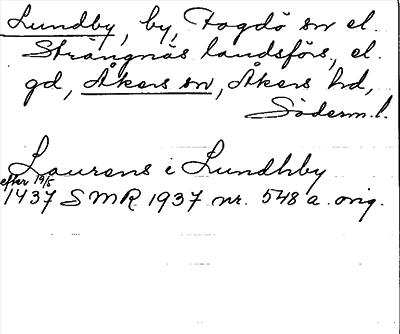 Lundby, by, Fogdö sn el.
Strängnäs landsförs., el.
gd, Åkers sn, Åkers hd,
Söderm.l.
Laurens i Lundhby
efter 19/5
1437 SMR 1937 nr. 548 a. orig.